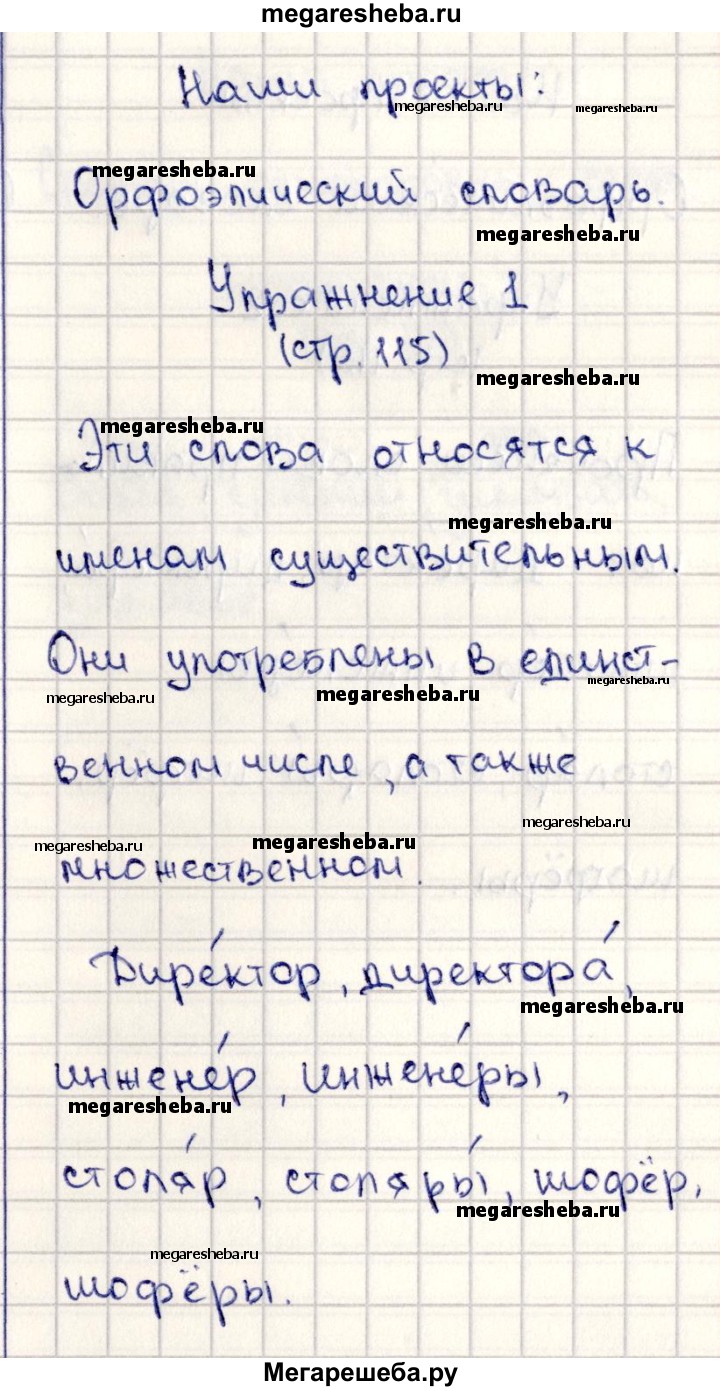 megaresheba.ru
Наши проекты:
megaresheba.ru megaresheba.ru
megaresheba.ru
Орфоэпический словарь.
megaresheba.ru
Упражнение 1
(стр. 115)
megaresheba.ru
megaresheba.ru
Эти слова относятся к
megaresheba.ru
именам существительным.
Они употреблены в единст-
megaresheba.ru megaresheba.ru megaresheba.ru
венном числе, а также
megaresheba.ru
megaresheba.ru megaresheba.ru
множественном.
Дире́ктор, директора́,
megaresheba.ru
инжене́р, инжене́ры,
megaresheba.ru
столя́р, столяры́, шофёр,
megaresheba.ru
megaresheba.ru
шофёры.
Мегарешеба.ру